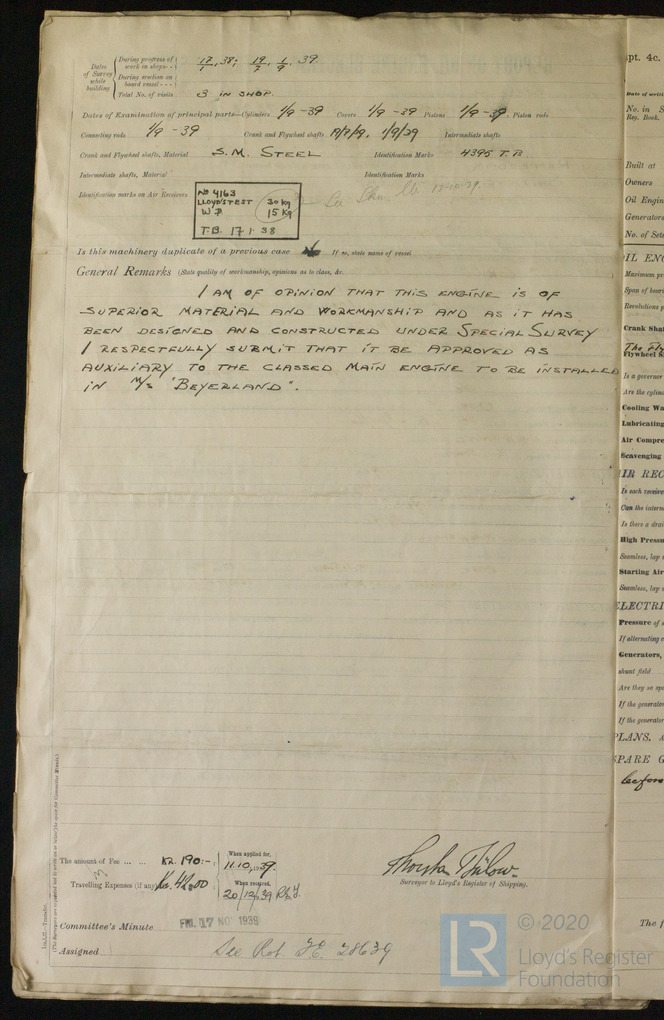 Dates of Survey while building
During progress of work in shops - - 17/1, 38; 19/7, 1/9, 39.
During erection on board vessel - - -
Total No. of visits 3 IN SHOP.
Dates of Examination of principal parts—Cylinders 1/9 -39 Covers 1/9 -39 Pistons 1/9 -39. Piston rods
Connecting rods 1/9 -39 Crank and Flywheel shafts 1/9/39 Intermediate shafts
Crank and Flywheel shafts, Material S.M. STEEL Identification Marks 4395 T.B
Intermediate shafts, Material Identification Marks
Identification marks on Air Receivers
No 4163
LLOYD'S TEST 30 kg
W P 15 Kg
T.B. 17 1 38
Is this machinery duplicate of a previous case No If so, state name of vessel
General Remarks (State quality of workmanship, opinions as to class, &c.
I AM OF OPINION THAT THIS ENGINE IS OF
SUPERIOR MATERIAL AND WORKMANSHIP AND AS IT HAS
BEEN DESIGNED AND CONSTRUCTED UNDER SPECIAL SURVEY
I RESPECTFULLY SUBMIT THAT IT BE APPROVED AS
AUXILIARY TO THE CLASSED MAIN ENGINE TO BE INSTALLED
IN M/S "BEYERLAND".
The amount of Fee ... ... Kr. 190:- When applied for, 11.10.1939.
Travelling Expenses (if any) Kr. 42.00 When received, 20/12/39
Thorsten Bülow.
Surveyor to Lloyd's Register of Shipping.
Committee's Minute FRI. 17 NOV 1939
Assigned See Rot. J.E. 28639
© 2020
Lloyd's Register
Foundation
LR
pt. 4c.
No. in S
Reg. Book.
Built at
Owners
Oil Engin
Generators
No. of Sets
IL ENG
Maximum pr
Span of beari
Revolutions p
Crank Shaf
The Fly
Flywheel S
Is a governor
Are the cylin
Cooling Wa
Lubricating
Air Compre
Scavenging
IR REC
Is each receive
Can the intern
Is there a drai
High Pressu
Seamless, lap w
Starting Air
Seamless, lap w
ELECTRI
Pressure of s
If alternating c
Generators,
shunt field
Are they so spe
If the generator
If the generator
PLANS. A
SPARE G
before
The f